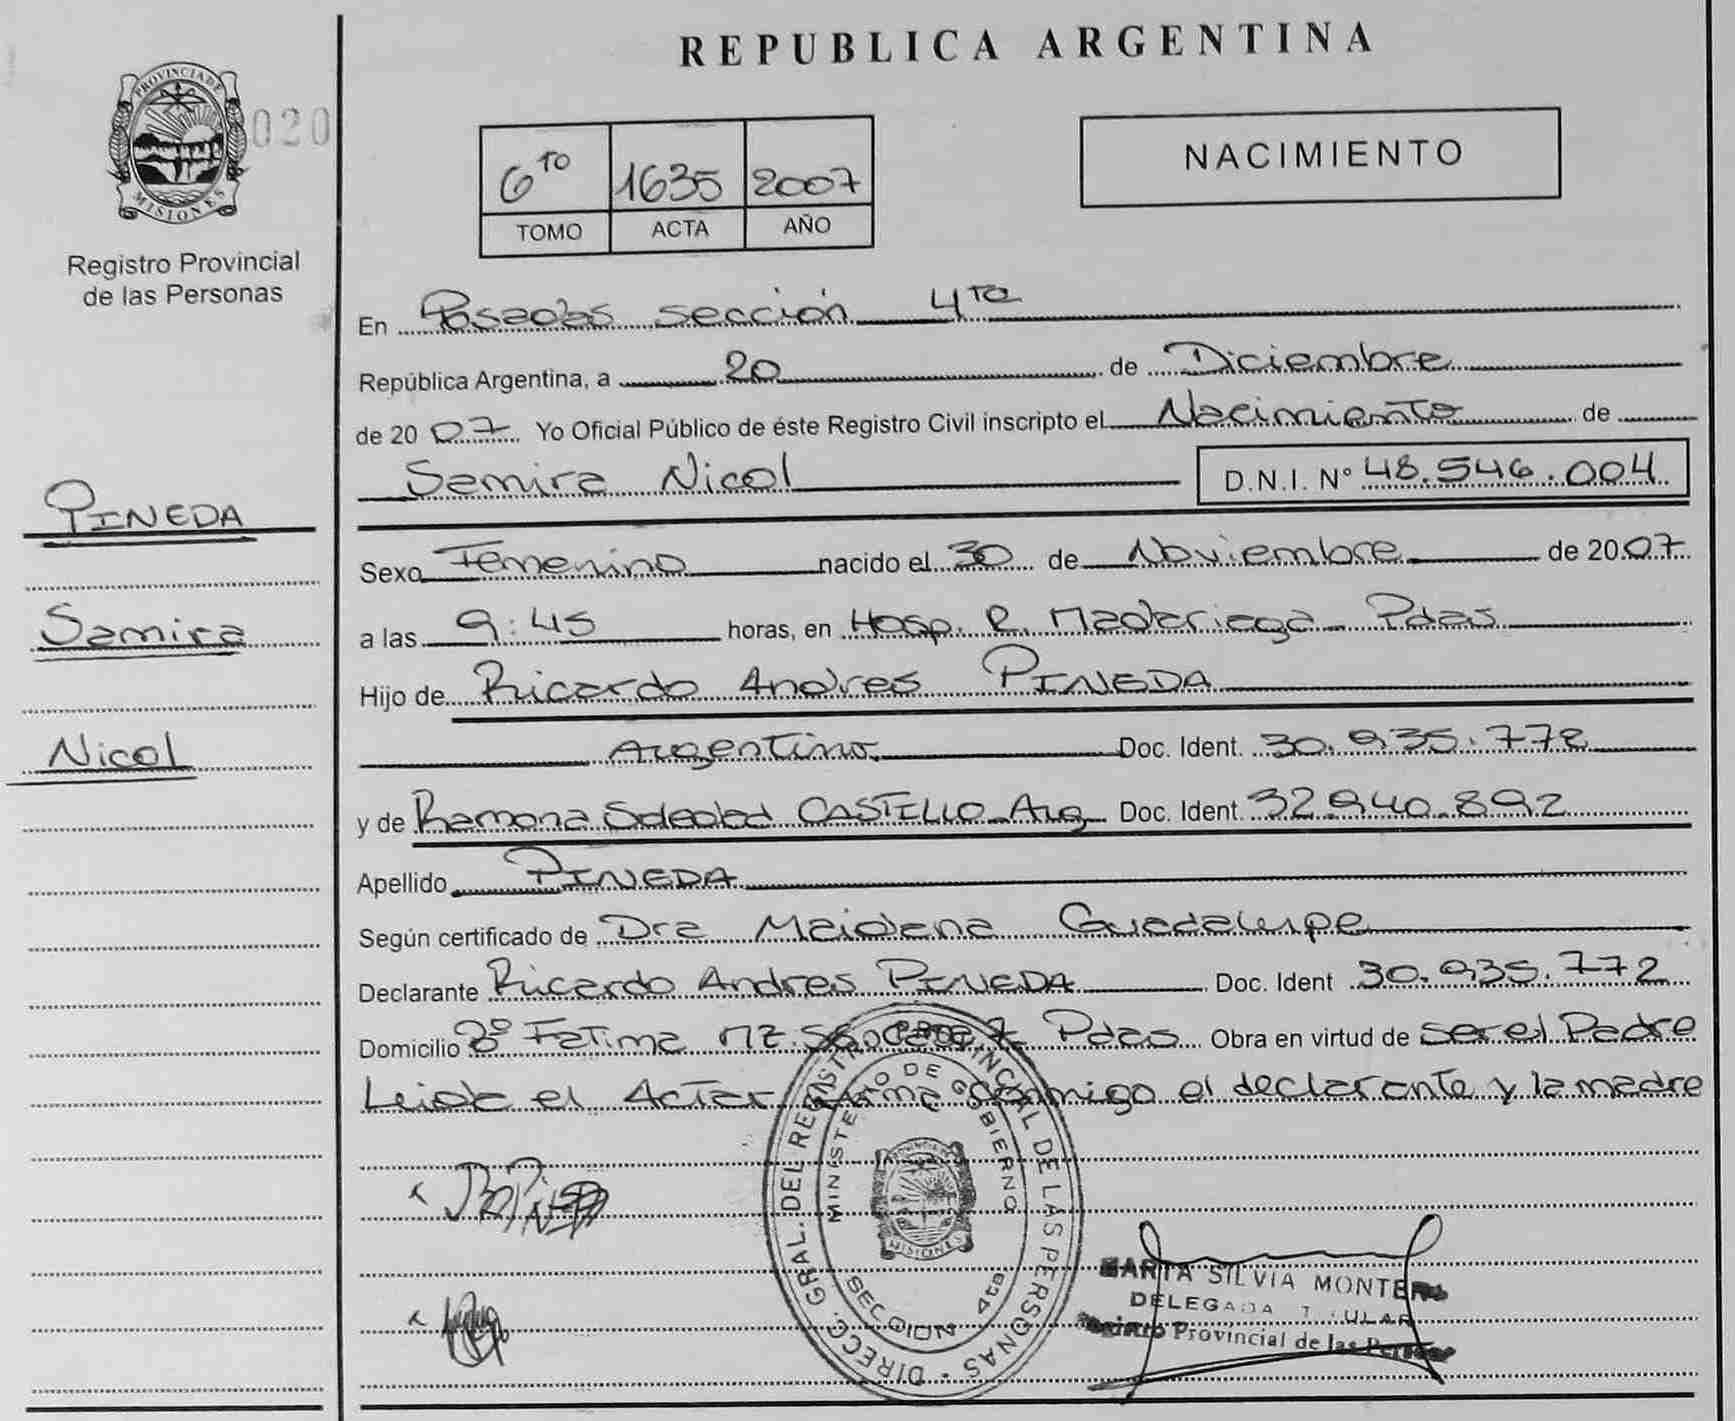 REPUBLICA ARGENTINA
PROVINCIA DE
MISIONES
020
Registro Provincial
de las Personas
6TO 1635 2007
TOMO ACTA AÑO
NACIMIENTO
PINEDA
Samira
Nicol
En Posadas sección 4TA
República Argentina, a 20 de Diciembre
de 2007 Yo Oficial Público de éste Registro Civil inscripto el Nacimiento de
Samira Nicol D.N.I. N° 48.546.004
Sexo Femenino nacido el 30 de Noviembre de 2007
a las 9:45 horas, en Hosp. R. Madariaga Pdas
Hijo de Ricardo Andres PINEDA
Argentino Doc. Ident. 30.935.772
y de Ramona Soledad CASTILLO Arg Doc. Ident. 32.940.892
Apellido PINEDA
Según certificado de Dra Maidana Guadalupe
Declarante Ricardo Andres PINEDA Doc. Ident 30.935.772
Domicilio Fatima MZ. Pdas Obra en virtud de ser el Padre
Leida el Acta firma conmigo el declarante y la madre
DIRECC. GRAL. DEL REGISTRO PROVINCIAL DE LAS PERSONAS
MINISTERIO DE GOBIERNO
MISIONES
SECCION 4ta
MARTA SILVIA MONTERO
DELEGADA TITULAR
Registro Provincial de las Personas